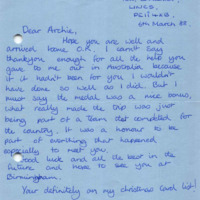 LINCS.
PE11 4XB.
6th March 88.
Dear Archie,
Hope you are well and
arrived home O.K. I can't say
thankyou enough for all the help you
gave to me out in Australia, because
if it hadn't been for you I wouldn't
have done as well as I did. But I
must say the medal was a nice bonus,
what really made the trip was just
being part of a team that competed for
the country. It was a honour to be
part of everything that happened,
especially to meet you.
Good luck and all the best in the
future and hope to see you at
Birmingham.
Your definitely on my christmas card list!